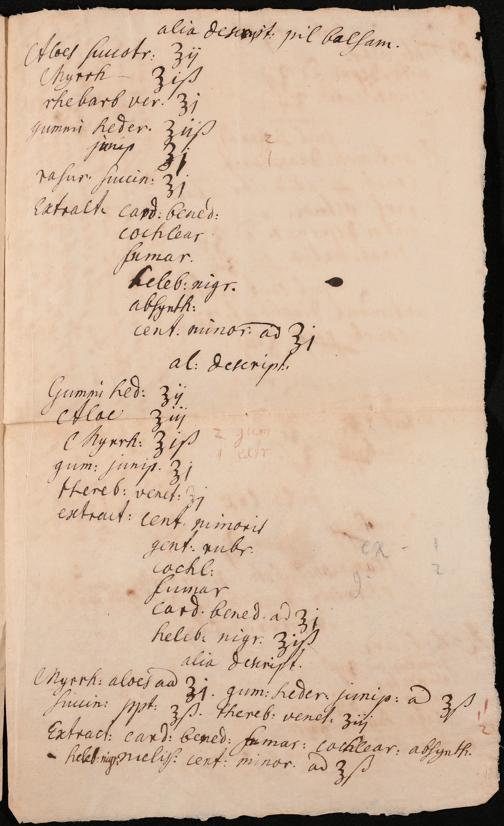 alia descript: pil balsam.
Aloes succotr: ʒij
Myrrh — ʒiß
rhebarb ver. ʒj
gummi heder. ʒiiß
junip ʒj
2
1
rasur. succin: ʒj
Extract card: bened:
cochlear
fumar.
heleb: nigr.
absynth:
cent: minor: ad ʒj
al: descript.
Gummi hed: ʒij
Aloe ʒiij
Myrrh: ʒiß
2 gum
1 extr
gum: junip. ʒj
thereb: venet: ʒj
extract: cent minoris
gent: rubr.
ex - 1
cochl:
g. 2
fumar
card. bened. ad ʒj
heleb: nigr. ʒiß
alia descript.
Myrrh: aloes ad ʒj. gum: heder. junip: ad ʒß
succin: ppt. ʒß. thereb: venet. ʒij
Extract: card: bened: fumar: cochlear: absynth.
heleb: nigr: meliss: cent: minor. ad ʒß